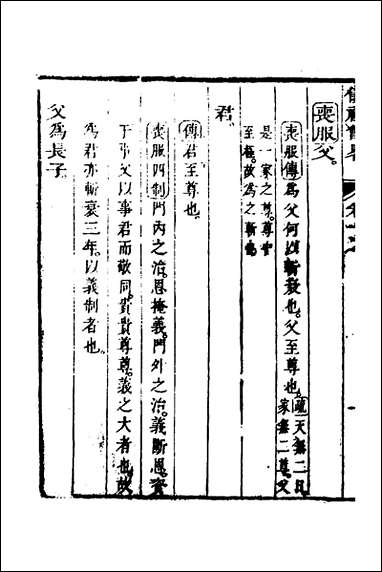 喪服父。
喪服傳為父何以斬衰也。父至尊也。疏天無二日
家無二尊。父
是一家之尊。尊中
至極。故為之斬也
君。
傳君至尊也。
喪服四制門內之治恩掩義。門外之治義斷恩。資
于事父以事君而敬同。貴貴尊尊。義之大者也。故
為君亦斬衰三年。以義制者也。
父為長子。